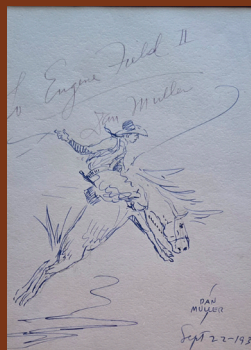 to Eugene Field II
Dan Muller
DAN
MULLER
Sept 22-19